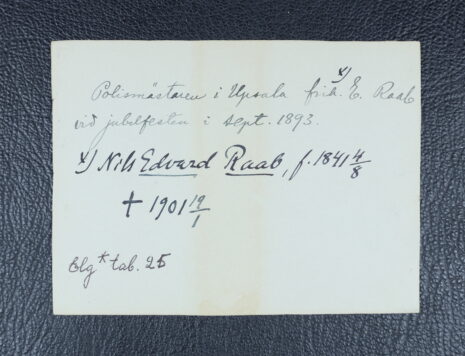 x)
Polismästaren i Upsala frih. E. Raab
vid jubelfesten i sept. 1893.
x) Nils Edvard Raab, f. 1841 4/8
† 1901 19/1
Elg x tab. 25